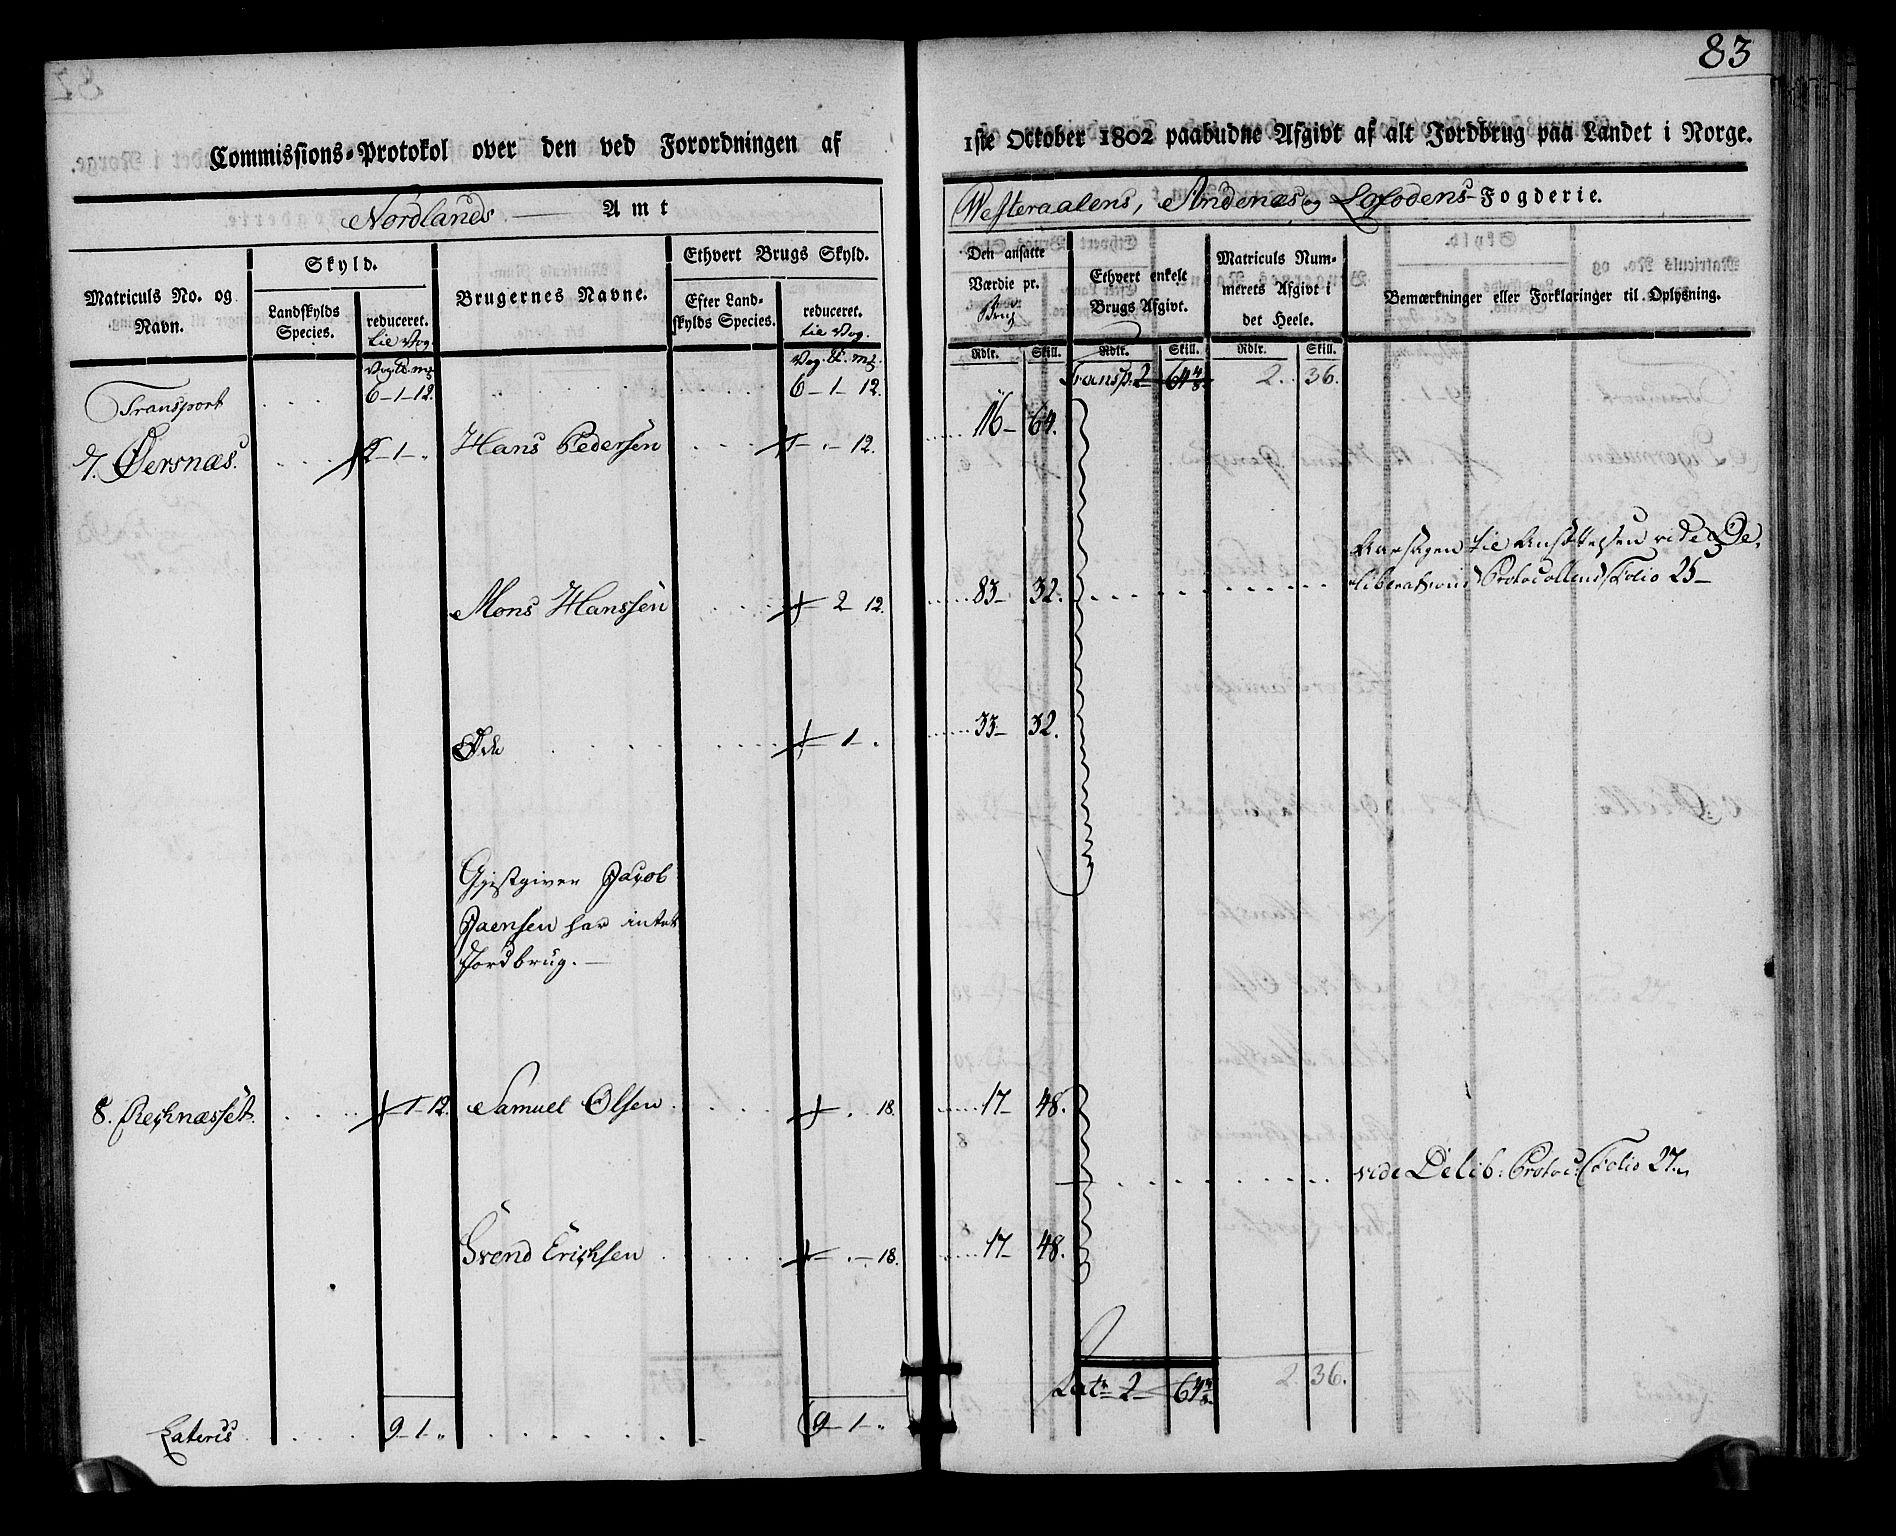 83
Commissions-Protokol over den ved Forordningen af
1ste October 1802 paabudne Afgivt af alt Jordbrug paa Landet i Norge.
Nordlands Amt
Westeraalens, Andenæs og Lofodens Fogderie.
Matriculs No. og Navn.
Skyld.
Landskylds Species.
reduceret. til Vog.
Brugernes Navne.
Ethvert Brugs Skyld.
Efter Landskylds Species.
reduceret. til Vog.
Den ansatte Værdie pr. Brug
Ethvert enkelt Brugs Afgivt.
Matriculs Nummerets Afgivt i det Heele.
Bemærkninger eller Forklaringer til Oplysning.
Rdlr. Skill. Rdlr. Skill. Rdlr. Skill.
Transport 6-1-12. 6-1-12. Transp: 2 64 2. 36.
7. Øersnæs. 2-1-. Hans Pedersen 1-.-12. 116- 64.
Aarsagen til Ansættelsen vide De-
liberations Protocollens Folio 25-
Mons Hanssen 2-12. 83- 32.
Øde 1-. 33- 32.
Gjestgiver Jacob
Jaensen har intet
Jordbrug.-
8. Reknæsset. 1-12. Samuel Olsen .-18. 17- 48.
vide Delib: Protoc: Folio 27.
Svend Erichsen .-18. 17- 48.
Lateris 9-1-" 9-1-" Lat: 2- 64 2. 36.